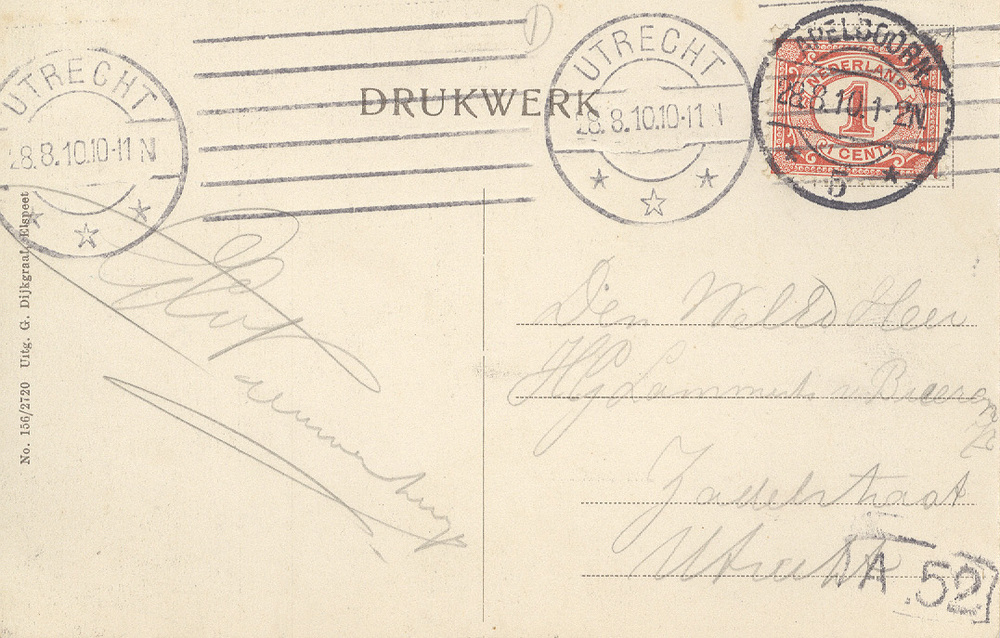 UTRECHT
28.8.10.10-11 N
DRUKWERK
UTRECHT
28.8.10.10-11 N
APELDOORN
28.8.10.1-2N
5
NEDERLAND
1
1 CENT
No. 156/2720 Uitg. G. Dijkgraaf, Elspeet
Den WelEd Heer
HJ Lammerts v Bueren
Zadelstraat
Utrecht
A 52